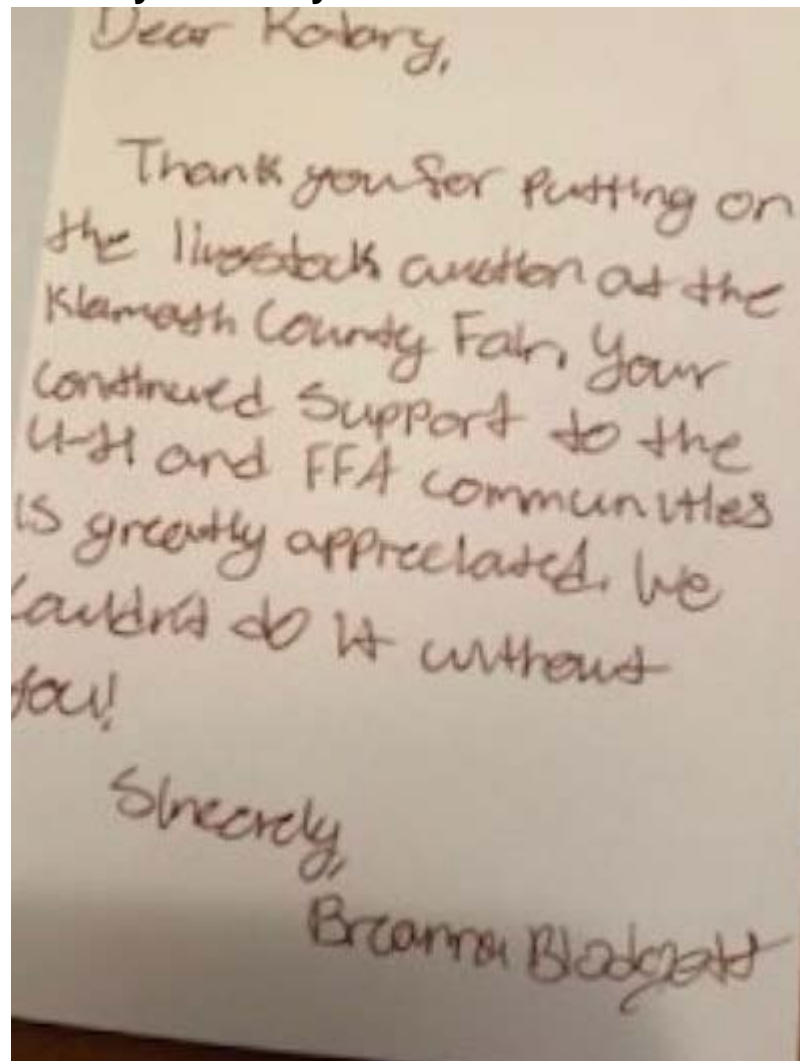 Dear Rotary,
Thank you for putting on
the livestock auction at the
Klamath County Fair. Your
continued support to the
4-H and FFA communities
is greatly appreciated. We
couldn't do it without
you!
Sincerely,
Breanna Blodgett